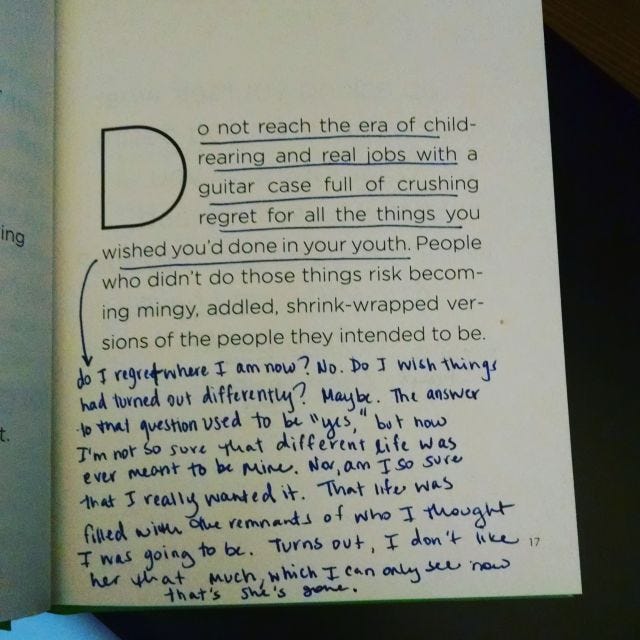 ing
t.
Do not reach the era of child-
rearing and real jobs with a
guitar case full of crushing
regret for all the things you
wished you'd done in your youth. People
who didn't do those things risk becom-
ing mingy, addled, shrink-wrapped ver-
sions of the people they intended to be.
do I regret where I am now? No. Do I wish things
had turned out differently? Maybe. The answer
to that question used to be "yes," but now
I'm not so sure that different life was
ever meant to be mine. Nor, am I so sure
that I really wanted it. That life was
filled with the remnants of who I thought
I was going to be. Turns out, I don't like
her that much, which I can only see now
that's she's gone.
17